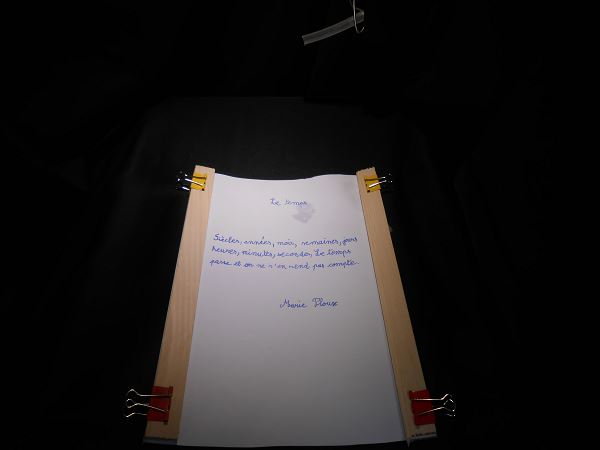 Le temps
Siècles, années, mois, semaines, jours
heures, minutes, secondes, Le temps
passe et on ne s'en rend pas compte.
Marie Ploux